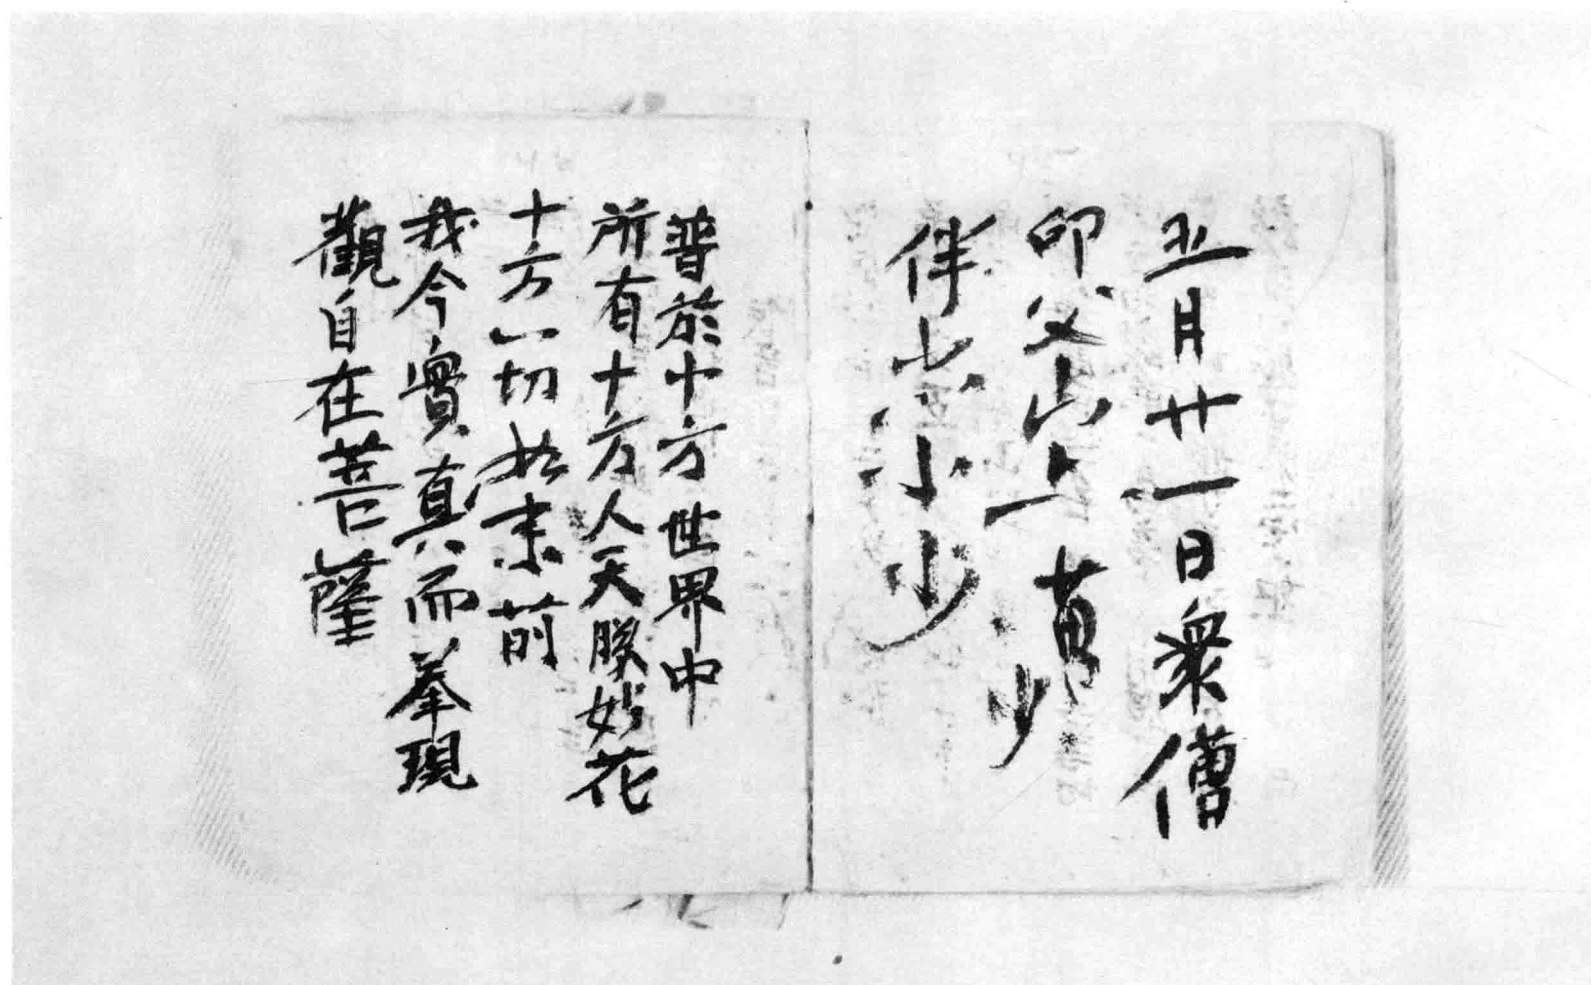 五月廿一日衆僧
卬父山上有少
伴小小少
普於十方世界中
所有十方人天勝妙花
十方一切如来前
我今實真而奉現
觀自在菩薩